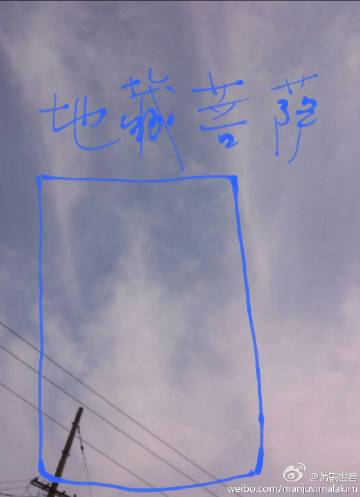 地藏菩萨
weibo.com/manjuvimalakirti